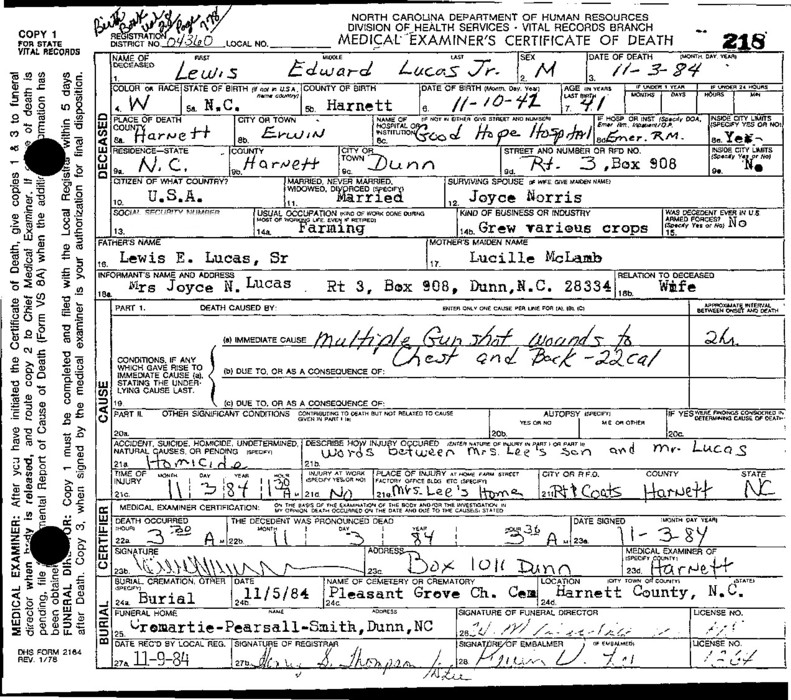 COPY 1
FOR STATE
VITAL RECORDS
Birth
Book
Page 778
REGISTRATION
DISTRICT NO. 04360 LOCAL NO.
NORTH CAROLINA DEPARTMENT OF HUMAN RESOURCES
DIVISION OF HEALTH SERVICES - VITAL RECORDS BRANCH
MEDICAL EXAMINER'S CERTIFICATE OF DEATH
218
NAME OF DECEASED FIRST MIDDLE LAST SEX DATE OF DEATH (MONTH, DAY, YEAR)
1. Lewis Edward Lucas Jr. 2. M 3. 11-3-84
COLOR OR RACE STATE OF BIRTH (If not in U.S.A., name country) COUNTY OF BIRTH DATE OF BIRTH (Month, Day, Year) AGE IN YEARS LAST BIRTH IF UNDER 1 YEAR MONTHS DAYS IF UNDER 24 HOURS HOURS MIN
4. W 5a. N.C. 5b. Harnett 6. 11-10-42 7. 41
PLACE OF DEATH COUNTY CITY OR TOWN NAME OF HOSPITAL OR INSTITUTION (IF NOT IN EITHER GIVE STREET AND NUMBER) IF HOSP OR INST (Specify DOA, Emer. Rm., Inpatient/O.P.) INSIDE CITY LIMITS (SPECIFY YES OR NO)
8a. Harnett 8b. Erwin 8c. Good Hope Hospital 8d. Emer. RM. 8e. Yes
RESIDENCE-STATE COUNTY CITY OR TOWN STREET AND NUMBER OR RFD NO. INSIDE CITY LIMITS (Specify Yes or No)
9a. N.C. 9b. Harnett 9c. Dunn 9d. Rt. 3, Box 908 9e. No
CITIZEN OF WHAT COUNTRY? MARRIED, NEVER MARRIED, WIDOWED, DIVORCED (SPECIFY) SURVIVING SPOUSE (IF WIFE GIVE MAIDEN NAME)
10. U.S.A. 11. Married 12. Joyce Norris
SOCIAL SECURITY NUMBER USUAL OCCUPATION (KIND OF WORK DONE DURING MOST OF WORKING LIFE, EVEN IF RETIRED) KIND OF BUSINESS OR INDUSTRY WAS DECEDENT EVER IN U.S. ARMED FORCES? (Specify Yes or No)
13. 14a. Farming 14b. Grew various crops 15. No
FATHER'S NAME MOTHER'S MAIDEN NAME
16. Lewis E. Lucas, Sr 17. Lucille McLamb
INFORMANT'S NAME AND ADDRESS RELATION TO DECEASED
18a. Mrs Joyce N. Lucas Rt 3, Box 908, Dunn, N.C. 28334 18b. Wife
PART 1. DEATH CAUSED BY: ENTER ONLY ONE CAUSE PER LINE FOR (A), (B), (C) APPROXIMATE INTERVAL BETWEEN ONSET AND DEATH
(a) IMMEDIATE CAUSE Multiple Gun shot wounds to 2h.
Chest and Back - 22 cal
CONDITIONS, IF ANY WHICH GAVE RISE TO IMMEDIATE CAUSE (a), STATING THE UNDERLYING CAUSE LAST.
(b) DUE TO, OR AS A CONSEQUENCE OF:
19 (c) DUE TO, OR AS A CONSEQUENCE OF:
PART II. OTHER SIGNIFICANT CONDITIONS CONTRIBUTING TO DEATH BUT NOT RELATED TO CAUSE GIVEN IN PART I (a) AUTOPSY (SPECIFY) YES OR NO ME OR OTHER IF YES WERE FINDINGS CONSIDERED IN DETERMINING CAUSE OF DEATH
20a. 20b. 20c.
ACCIDENT, SUICIDE, HOMICIDE, UNDETERMINED, NATURAL CAUSES, OR PENDING (SPECIFY) DESCRIBE HOW INJURY OCCURED (ENTER NATURE OF INJURY IN PART I OR PART II)
21a. Homicide 21b. words between Mrs. Lee's son and Mr. Lucas
TIME OF INJURY MONTH DAY YEAR HOUR INJURY AT WORK (SPECIFY YES OR NO) PLACE OF INJURY AT HOME FARM STREET FACTORY OFFICE BLDG ETC (SPECIFY) CITY OR R.F.D. COUNTY STATE
21c. 11 3 84 130 A M 21d. No 21e. Mrs. Lee's Home 21f. Rt 1 Coats Harnett NC
MEDICAL EXAMINER CERTIFICATION: ON THE BASIS OF THE EXAMINATION OF THE BODY AND/OR THE INVESTIGATION IN MY OPINION, DEATH OCCURRED ON THE DATE AND DUE TO THE CAUSE(S) STATED
DEATH OCCURRED HOUR THE DECEDENT WAS PRONOUNCED DEAD MONTH DAY YEAR HOUR DATE SIGNED (MONTH DAY YEAR)
22a. 3 A M 22b. 11 3 84 3 36 A M 23a. 11-3-84
SIGNATURE ADDRESS MEDICAL EXAMINER OF (SPECIFY COUNTY)
23b. 23c. Box 1011 Dunn 23d. Harnett
BURIAL, CREMATION, OTHER (SPECIFY) DATE NAME OF CEMETERY OR CREMATORY LOCATION (CITY TOWN OR COUNTY) (STATE)
24a. Burial 24b. 11/5/84 24c. Pleasant Grove Ch. Cem 24d. Harnett County, N.C.
FUNERAL HOME NAME ADDRESS SIGNATURE OF FUNERAL DIRECTOR LICENSE NO.
25. Cromartie-Pearsall-Smith, Dunn, NC 26.
DATE REC'D BY LOCAL REG. SIGNATURE OF REGISTRAR SIGNATURE OF EMBALMER (IF EMBALMED) LICENSE NO.
27a. 11-9-84 27b. Thompson 28.
DHS FORM 2164
REV. 1/78
DECEASED
CAUSE
CERTIFIER
BURIAL
MEDICAL EXAMINER: After you have initiated the Certificate of Death, give copies 1 & 3 to funeral
director when body is released, and route copy 2 to Chief Medical Examiner. If of death is
pending, file mental Report of Cause of Death (Form VS 8A) when the additio ormation has
been obtained
FUNERAL DI OR: Copy 1 must be completed and filed with the Local Registrar within 5 days
after Death. Copy 3, when signed by the medical examiner is your authorization for final disposition.